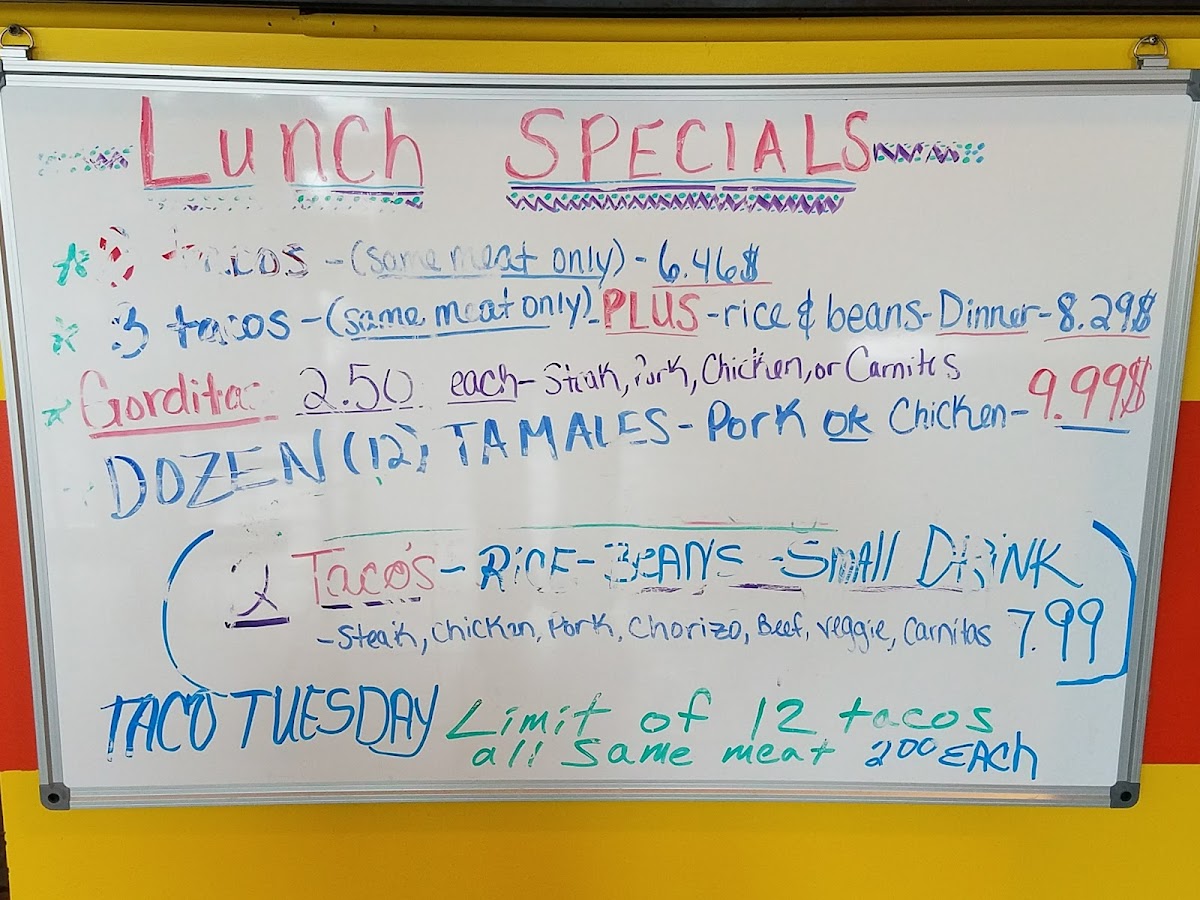 Lunch SPECIALS
tacos - (same meat only) - 6.46$
3 tacos - (same meat only) - PLUS - rice & beans - Dinner - 8.29$
Gorditas 2.50 each - Steak, Pork, Chicken, or Carnitas
DOZEN (12) TAMALES - Pork OR Chicken - 9.99$
2 Taco's - RICE - BEANS - SMall DRiNK
- Steak, chicken, Pork, Chorizo, Beef, veggie, carnitas 7.99
TACO TUESDAY Limit of 12 tacos
all same meat 200 EACh